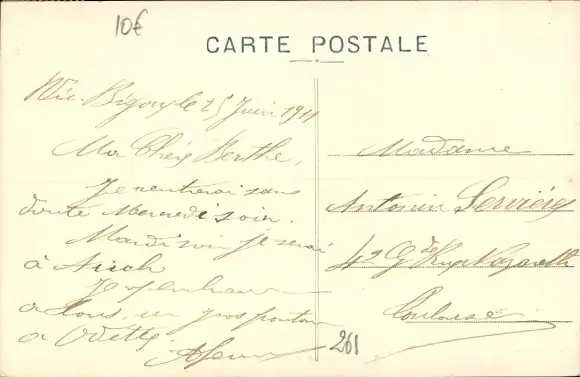 10€
CARTE POSTALE
Vic-Bigorre le 25 Juin 1911
Ma Chère Berthe,
Je rentrerai sans
doute Mercredi soir.
Mardi soir je serai
à Auch
à tous un gros
à Odette.
Madame
Antonin Servières
42 Gde Rue Nazareth
Toulouse
261